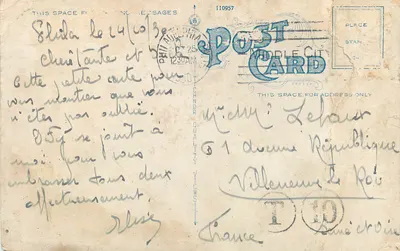 110957
THIS SPACE FOR MESSAGES
POST CARD
THIS SPACE FOR ADDRESS ONLY
PLACE
STAMP
HERE
Phila le 24/10/30
Cette petite carte pour
vous montrer que vous
n'êtes pas oubliée.
se joint à
moi pour vous
embrasser tous deux
affectueusement.
Elise
61 avenue République
Villeneuve le Roi
T 10
France Seine et Oise